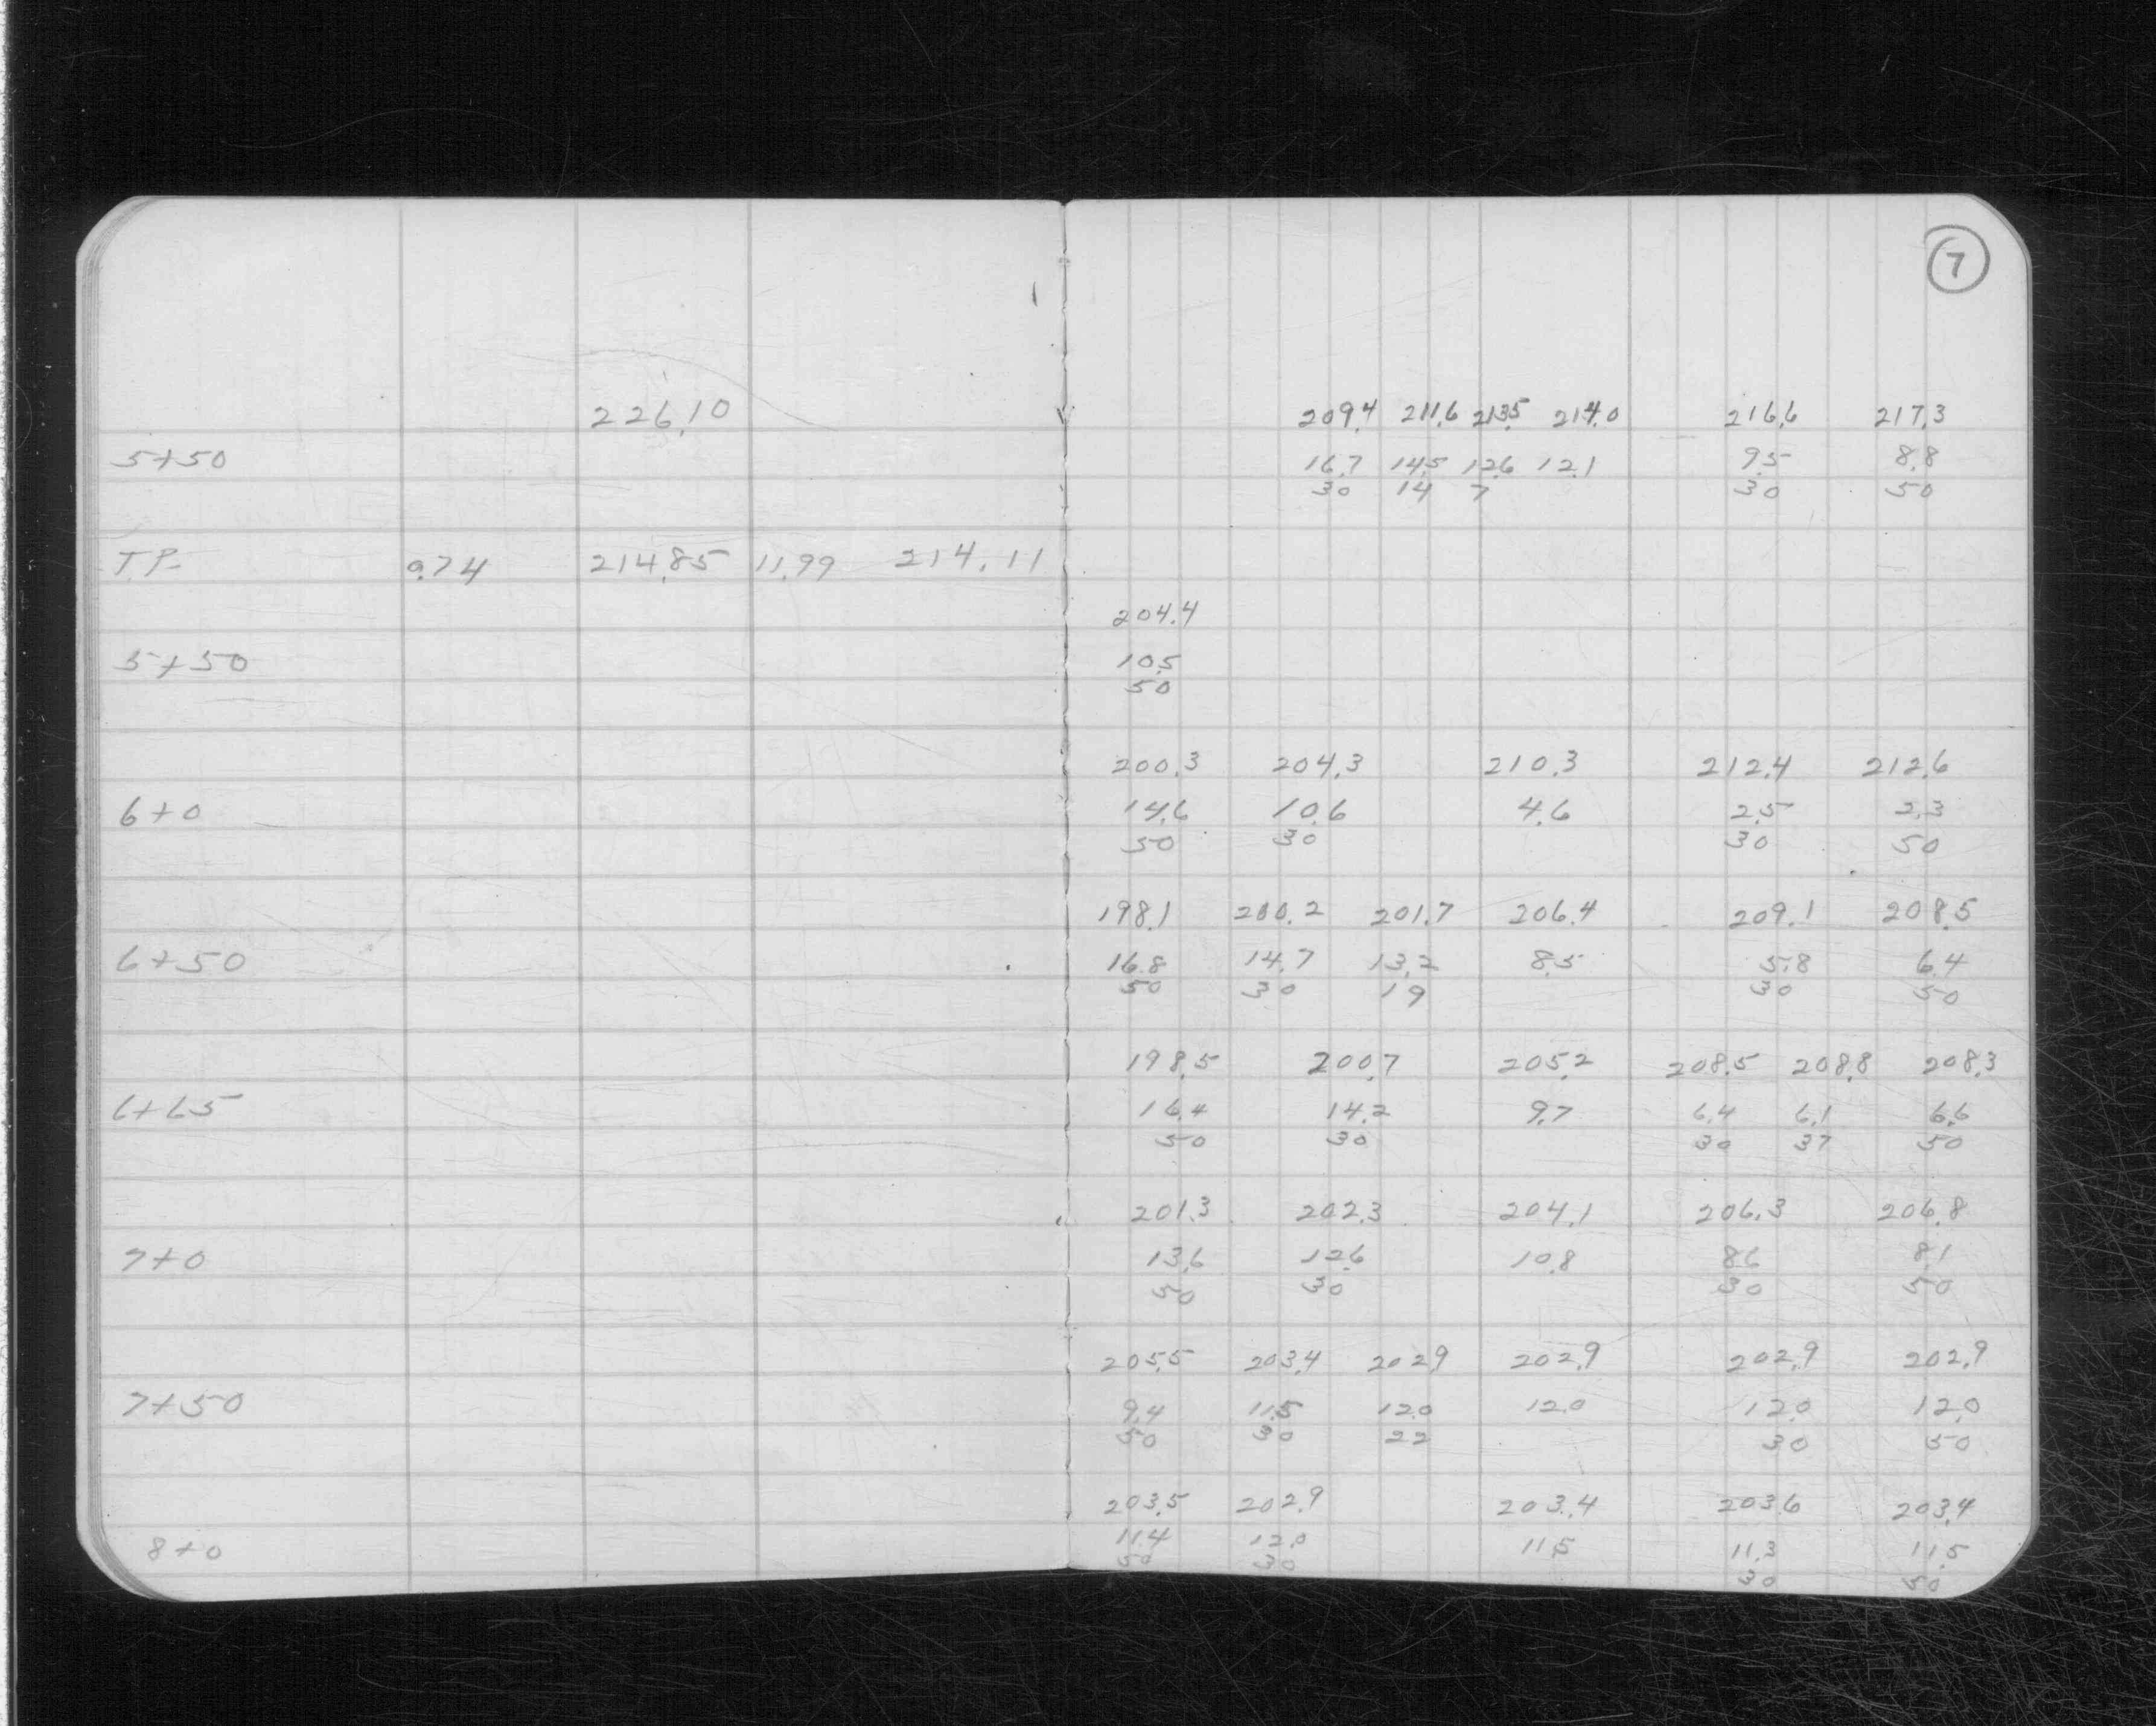 7
226.10 209.4 211.6 213.5 214.0 216.6 217.3
5+50 16.7 14.5 12.6 12.1 9.5 8.8
30 14 7 30 50
T.P. 0.74 214.85 11.99 214.11
204.4
5+50 10.5
50
200.3 204.3 210.3 212.4 212.6
6+0 14.6 10.6 4.6 2.5 2.3
50 30 30 50
198.1 200.2 201.7 206.4 209.1 208.5
6+50 16.8 14.7 13.2 8.5 5.8 6.4
50 30 19 30 50
198.5 200.7 205.2 208.5 208.8 208.3
6+65 16.4 14.2 9.7 6.4 6.1 6.6
50 30 30 37 50
201.3 202.3 204.1 206.3 206.8
7+0 13.6 12.6 10.8 8.6 8.1
50 30 30 50
205.5 203.4 202.9 202.9 202.9 202.9
7+50 9.4 11.5 12.0 12.0 12.0 12.0
50 30 22 30 50
203.5 202.9 203.4 203.6 203.4
8+0 11.4 12.0 11.5 11.3 11.5
50 30 30 50